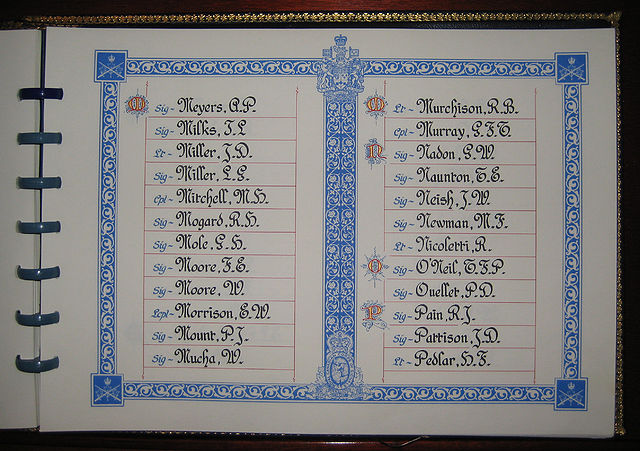 M
Sig~ Meyers, A.P.
Sig~ Milks, J.L
Lt~ Miller, J.D.
Sig~ Miller, L.E.
Cpl~ Mitchell, M.H.
Sig~ Mogard, R.H.
Sig~ Mole, G.H.
Sig~ Moore, F.E.
Sig~ Moore, W.
Lcpl~ Morrison, E.W.
Sig~ Mount, P.J.
Sig~ Mucha, W.
M
Lt~ Murchison, R.B.
Cpl~ Murray, G.F.T.
N
Sig~ Nadon, G.W.
Sig~ Naunton, T.E.
Sig~ Neish, J.W.
Sig~ Newman, M.F.
Lt~ Nicoletti, R.
O
Sig~ O'Neil, T.F.P.
Sig~ Ouellet, P.D.
P
Sig~ Pain, R.J.
Sig~ Pattison, J.D.
Lt~ Pedlar, H.F.